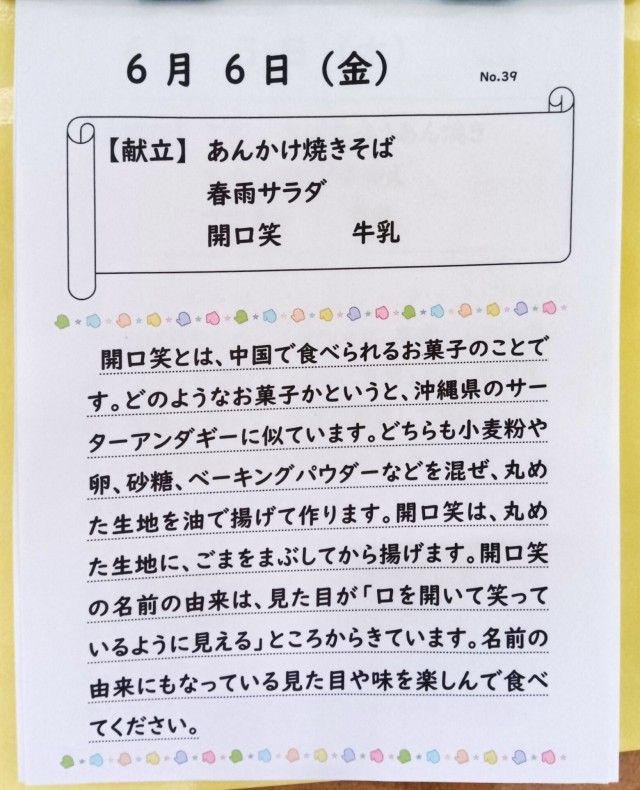 6月 6日（金）
No.39
【献立】 あんかけ焼きそば
春雨サラダ
開口笑 牛乳
開口笑とは、中国で食べられるお菓子のことで
す。どのようなお菓子かというと、沖縄県のサー
ターアンダギーに似ています。どちらも小麦粉や
卵、砂糖、ベーキングパウダーなどを混ぜ、丸め
た生地を油で揚げて作ります。開口笑は、丸め
た生地に、ごまをまぶしてから揚げます。開口笑
の名前の由来は、見た目が「口を開いて笑って
いるように見える」ところからきています。名前の
由来にもなっている見た目や味を楽しんで食べ
てください。